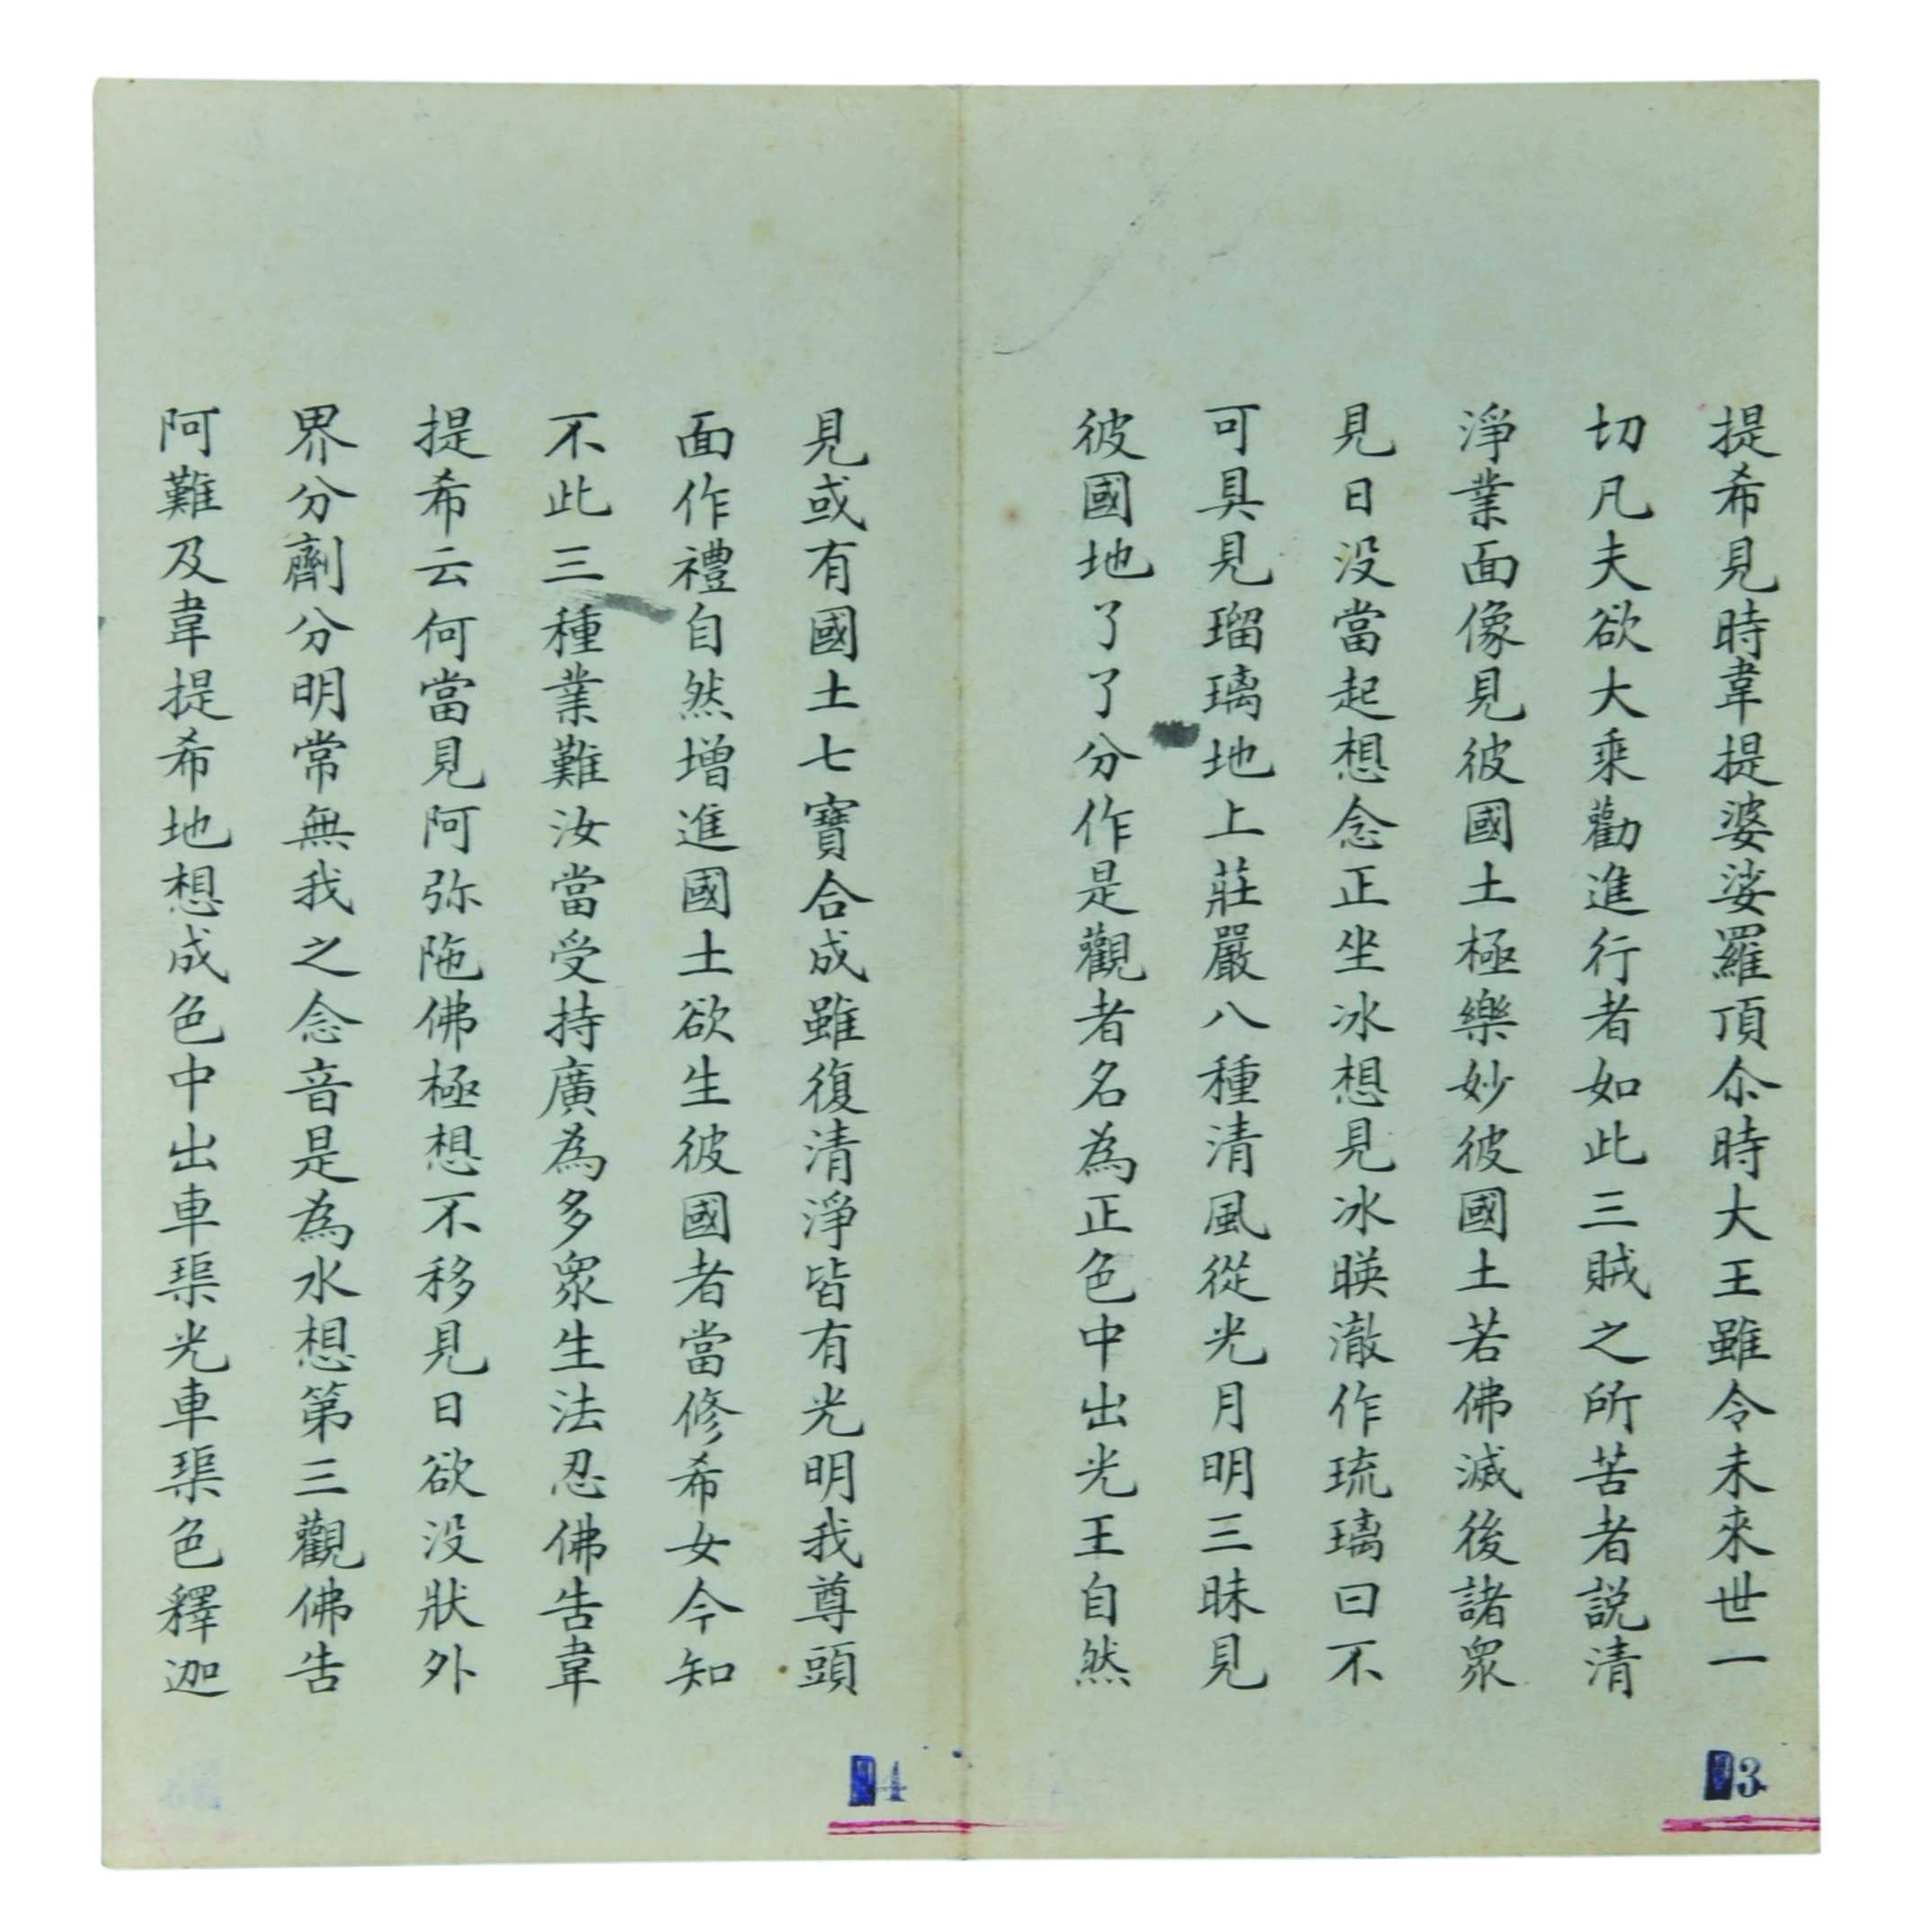 提希見時韋提婆娑羅頂尒時大王雖令未來世一
切凡夫欲大乘勸進行者如此三賊之所苦者説清
淨業面像見彼國土極樂妙彼國土若佛滅後諸眾
見日没當起想念正坐冰想見冰暎澈作琉璃曰不
可具見瑠璃地上莊嚴八種清風從光月明三昧見
彼國地了了分作是觀者名為正色中出光王自然
3
見或有國土七寶合成雖復清淨皆有光明我尊頭
面作禮自然增進國土欲生彼國者當修希女今知
不此三種業難汝當受持廣為多眾生法忍佛告韋
提希云何當見阿弥陁佛極想不移見日欲没狀外
界分劑分明常無我之念音是為水想第三觀佛告
阿難及韋提希地想成色中出車磲光車磲色釋迦
4